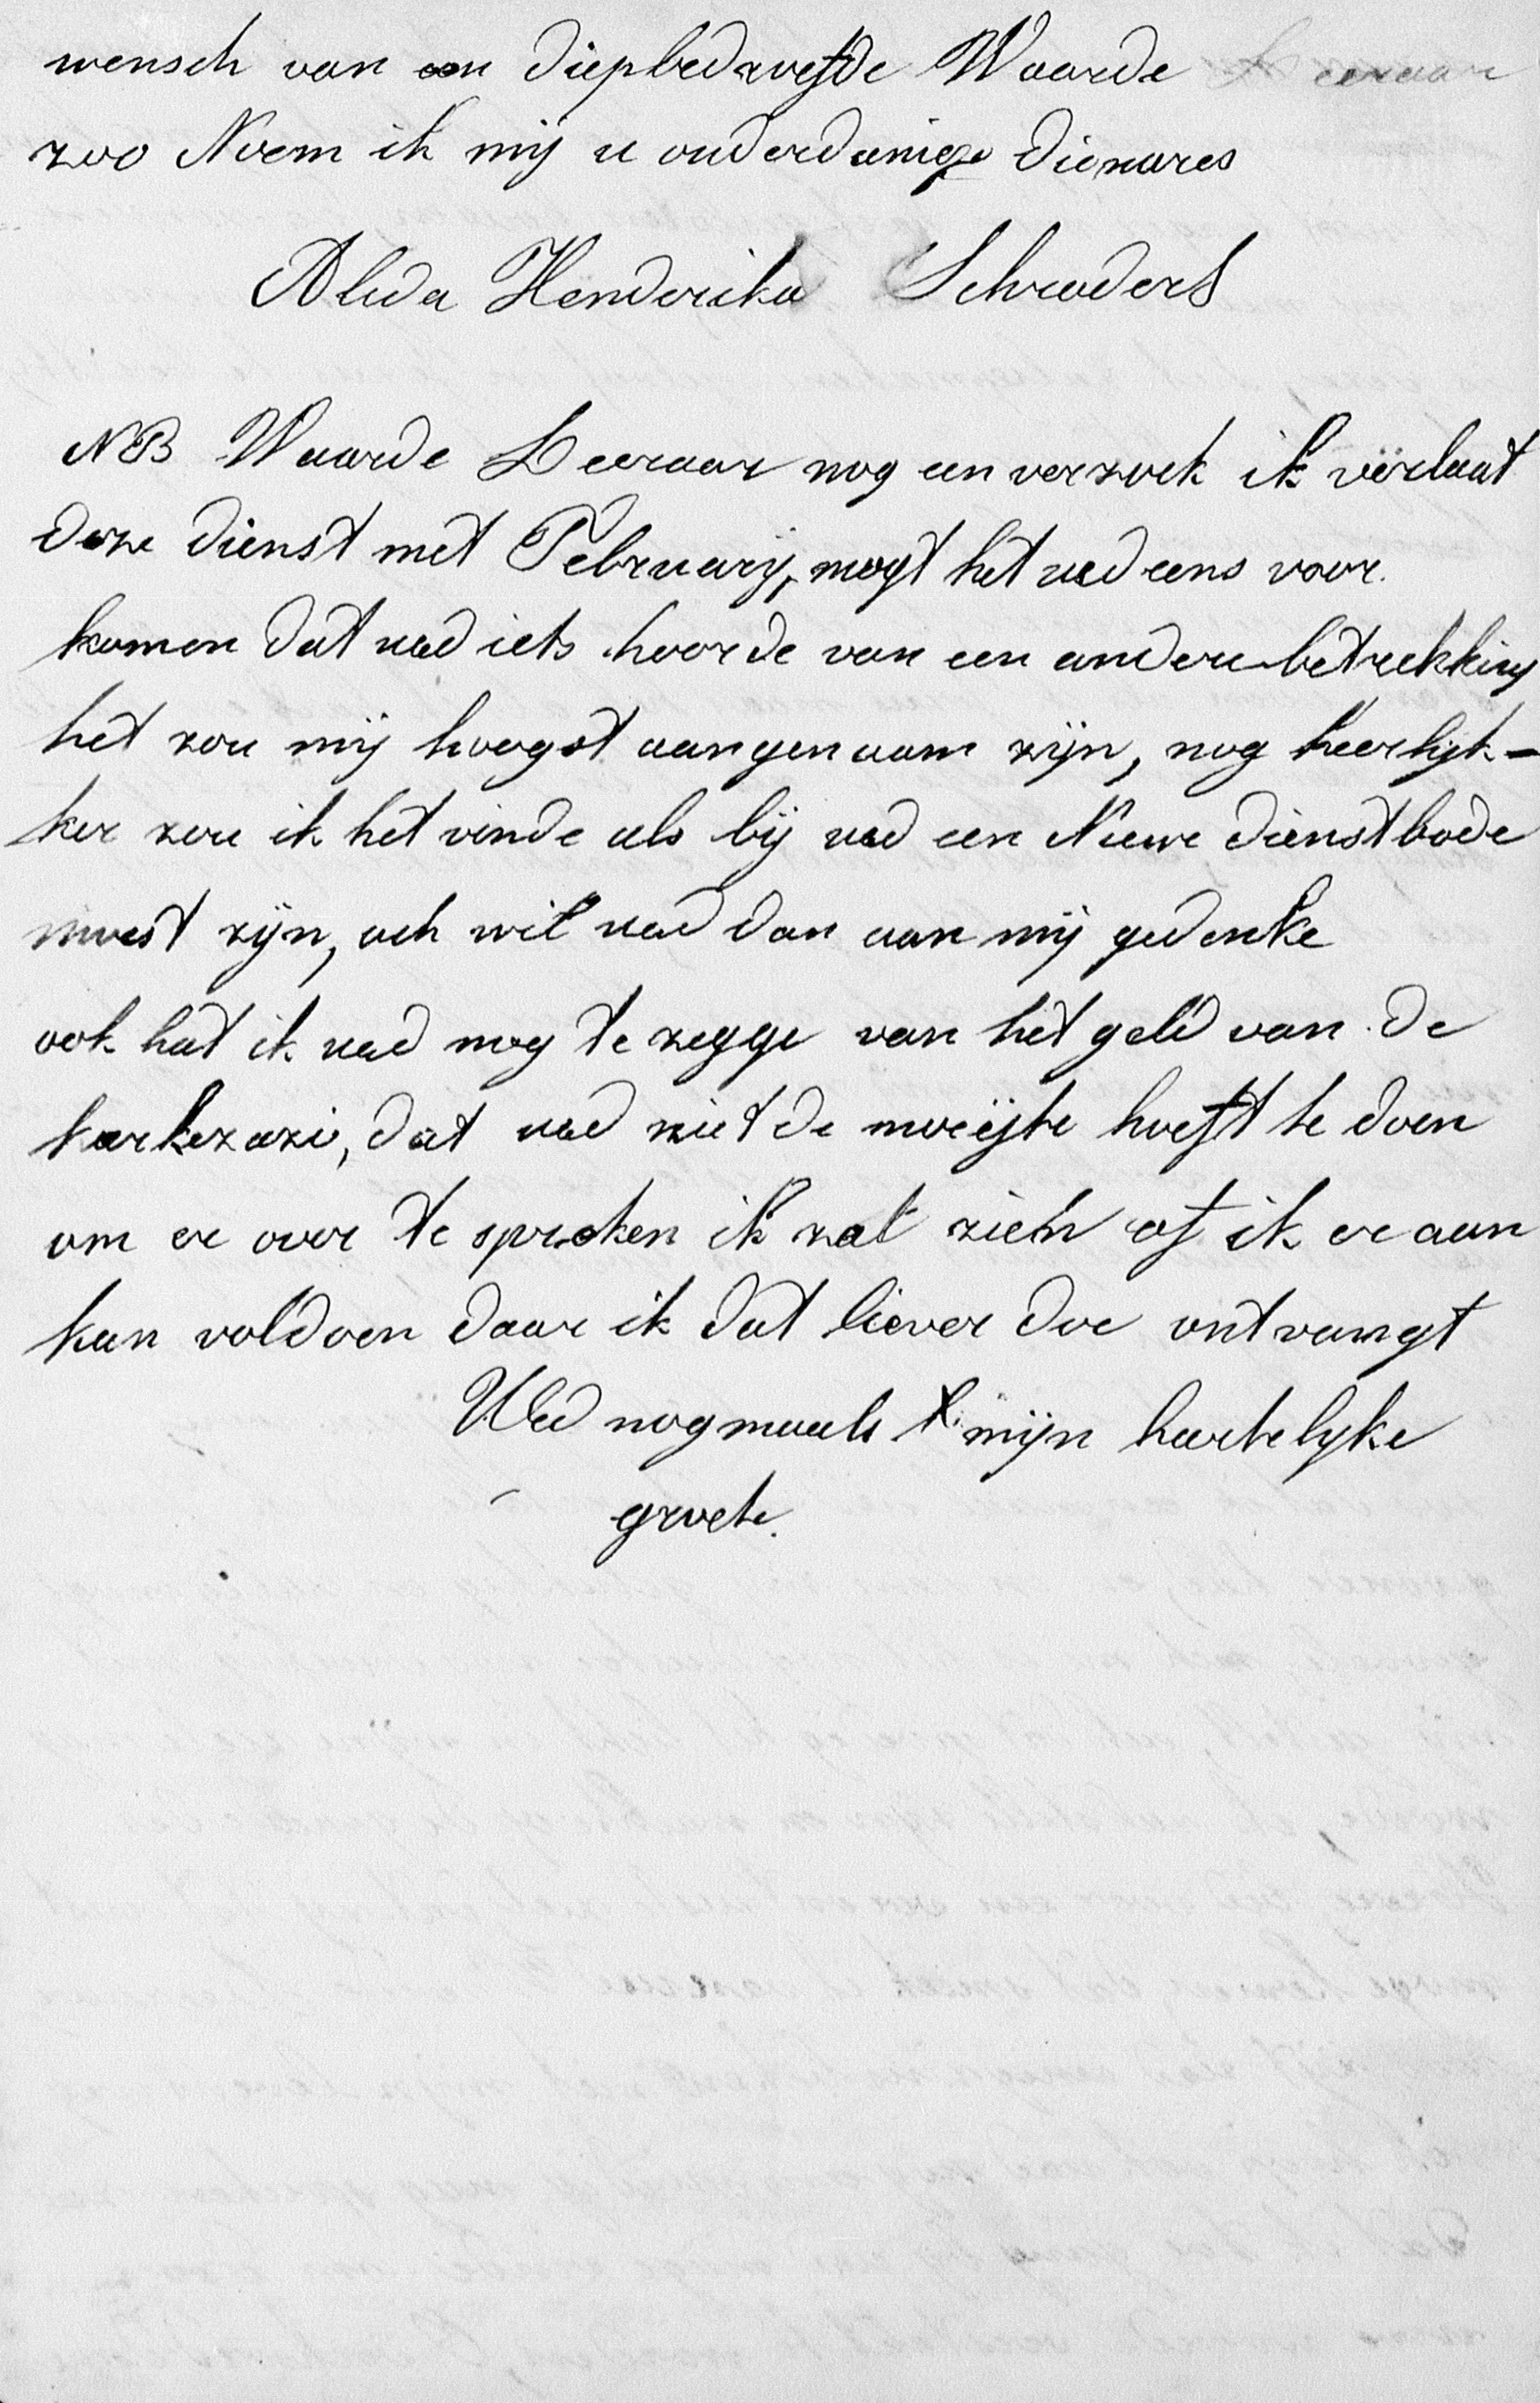 wensch van een diepbedroefde Waarde Leeraar
zoo Noem ik mij u onderdanige dienares
Alida Henderika Schreuders
NB Waarde Leeraar nog een verzoek ik verlaat
deze dienst met February, mogt het ued eens voor
komen dat ued iets hoorde van een andere betrekking
het zou mij hoogst aangenaam zijn, nog heerlijk-
ker zou ik het vinde als bij ued een Nieuwe dienstbode
moest zijn, ach wil ued dan aan mij gedenke
ook hat ik ued nog te zegge van het geld van de
, dat ued niet de moeijte hoeft te doen
om er over te spreken ik zal zien of ik er aan
kan voldoen daar ik dat liever doe ontvangt
Ued nogmaals mijn hartelyke
groete.